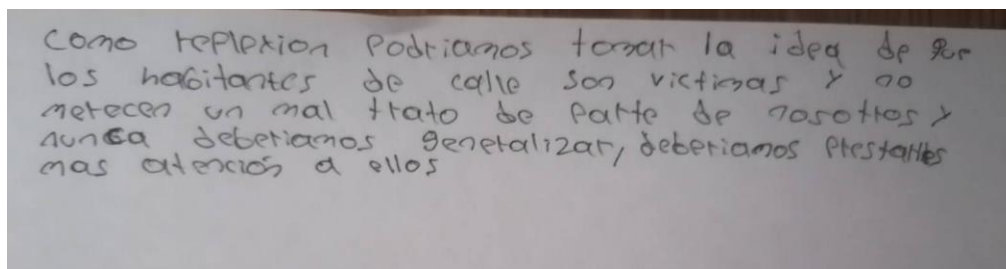 como reflexion Podriamos tomar la idea de que
los habitantes de calle son victimas y no
merecen un mal trato de parte de nosotros y
nunca deberiamos generalizar, deberiamos prestarles
mas atención a ellos